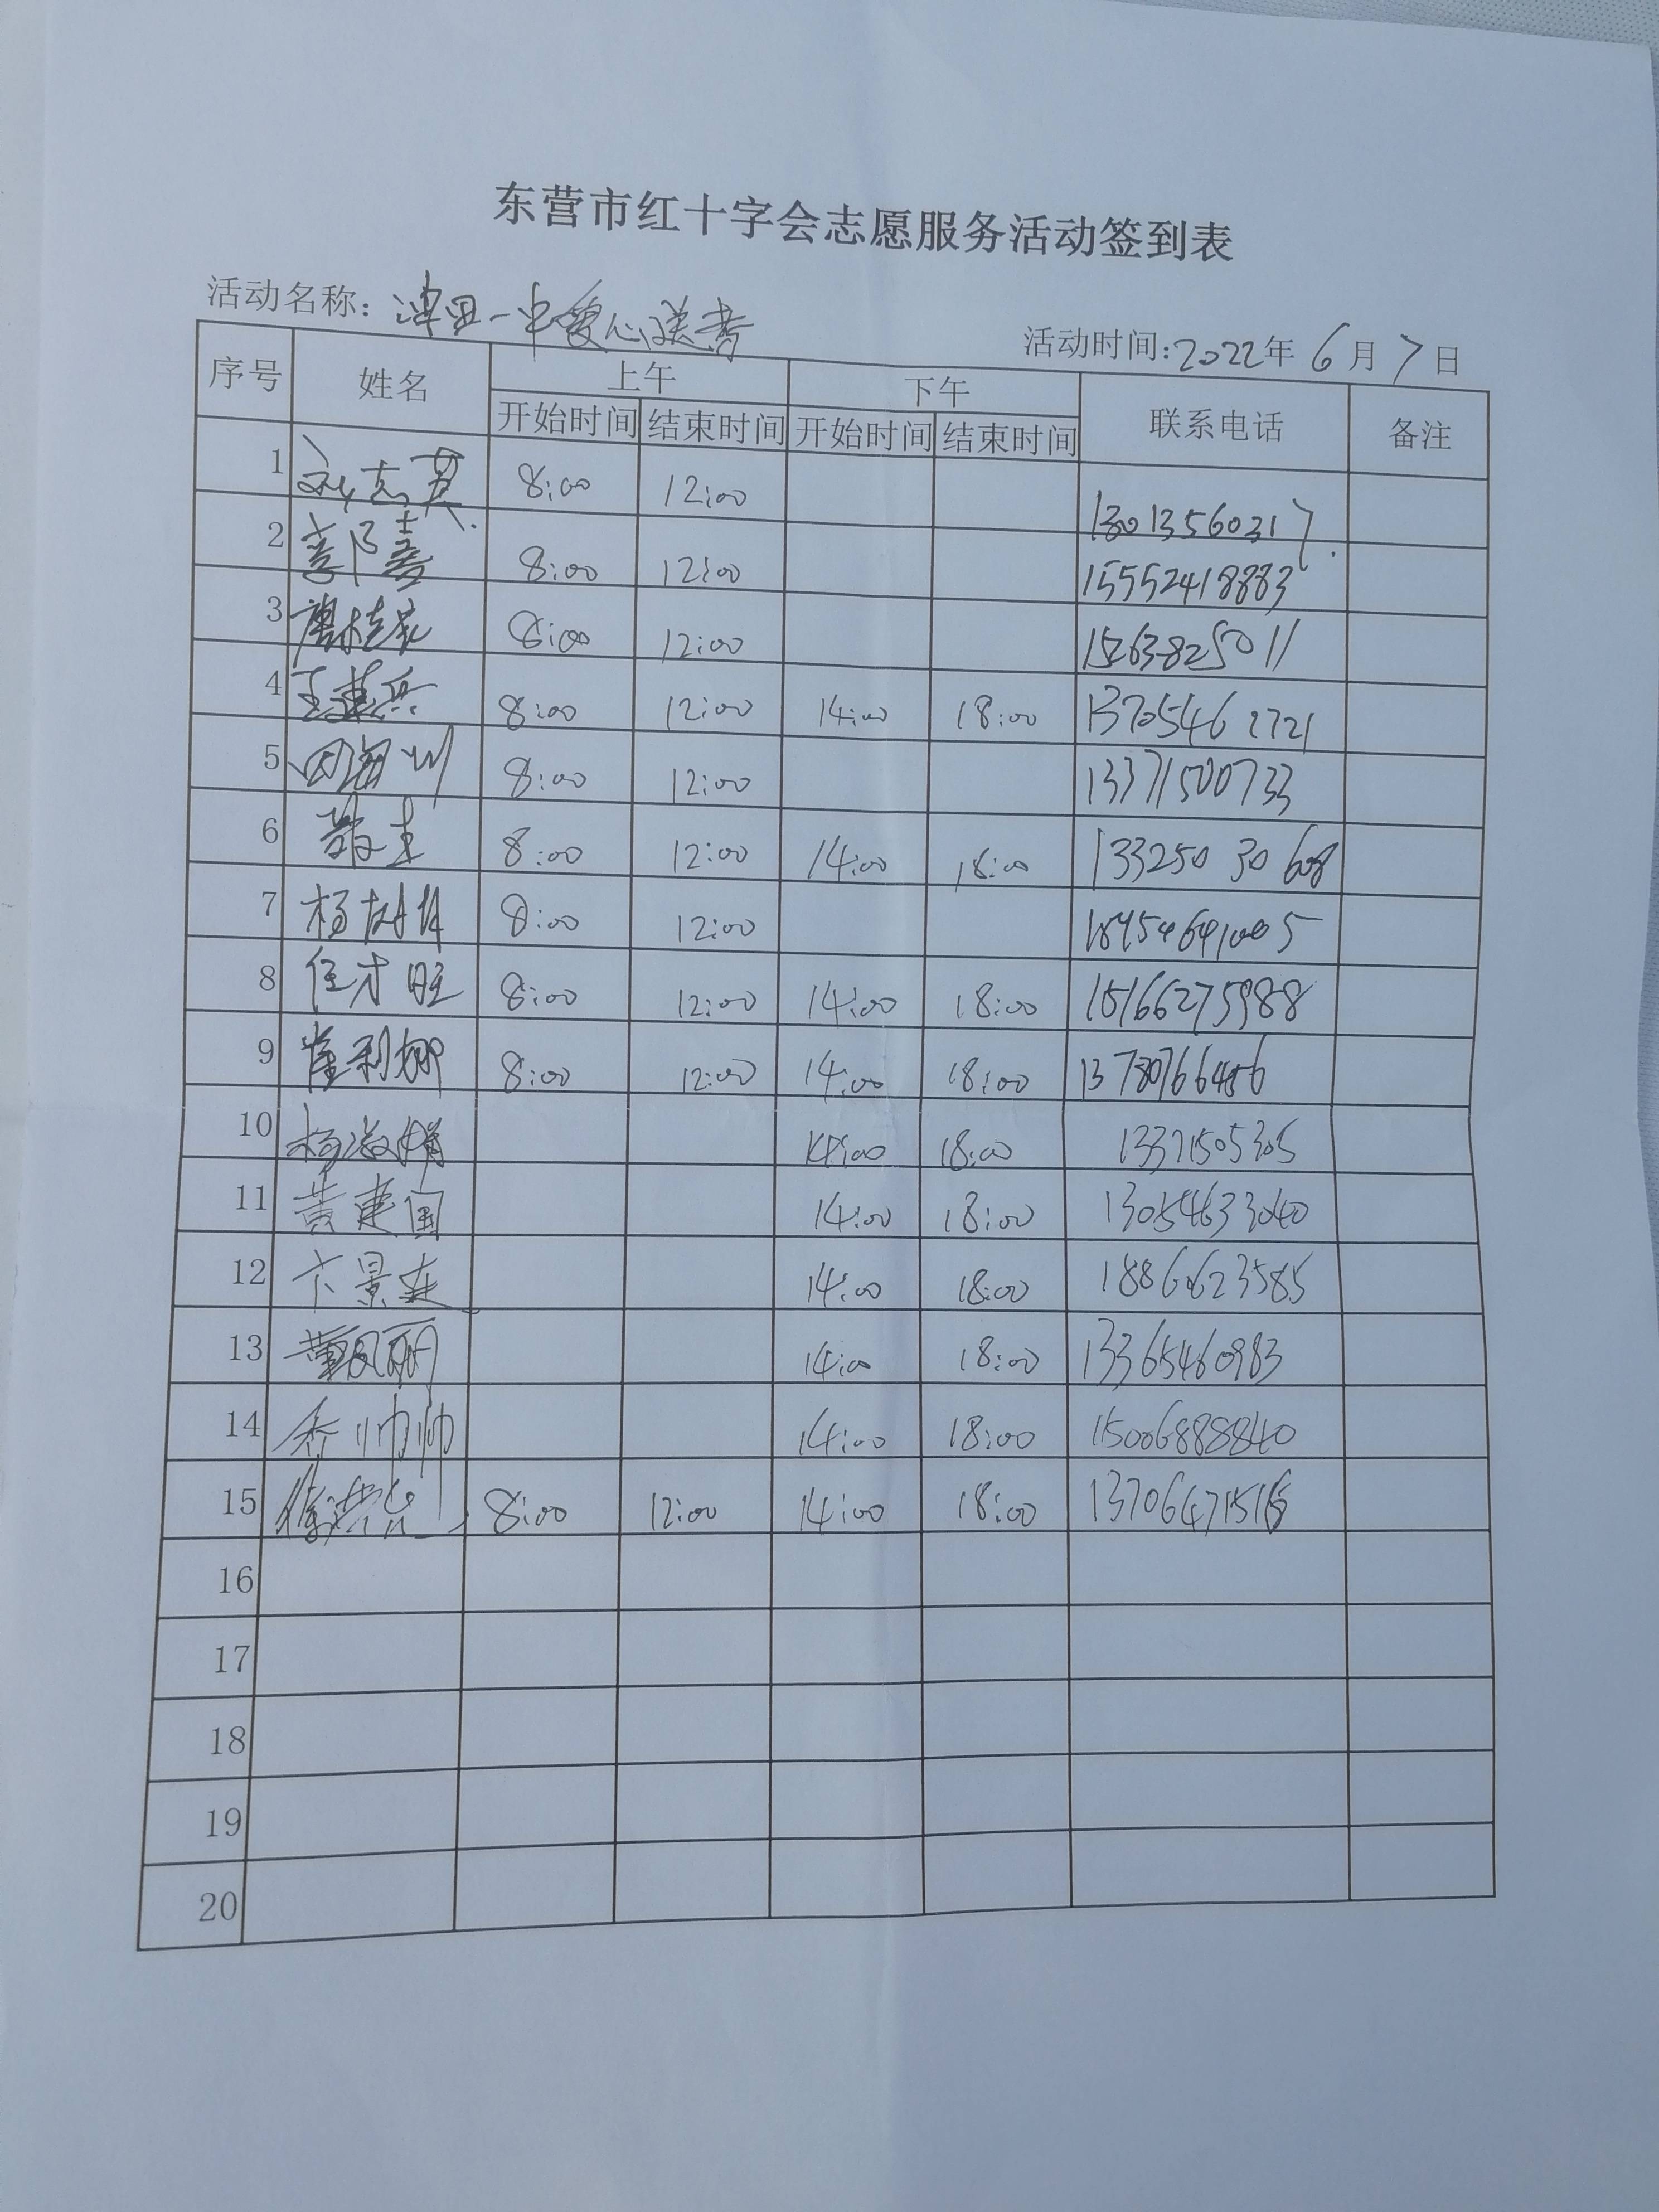 东营市红十字会志愿服务活动签到表
活动名称: 津一中爱心送考 活动时间:2022年6月7日
序号 姓名 上午 下午 联系电话 备注
开始时间 结束时间 开始时间 结束时间
1 刘志英 8:00 12:00 18013560317
2 郭喜 8:00 12:00 15552418883
3 8:00 12:00 15263825011
4 王建兵 8:00 12:00 14:00 18:00 13705462721
5 8:00 12:00 13371500733
6 8:00 12:00 14:00 18:00 13325030608
7 杨 8:00 12:00
8 任才旺 8:00 12:00 14:00 18:00 15166275988
9 崔利娜 8:00 12:00 14:00 18:00
10 杨淑娟 14:00 18:00 13371505305
11 黄建国 14:00 18:00 13054633040
12 卞景 14:00 18:00 18866623585
13 董凤丽 14:00 18:00 13365460983
14 乔帅帅 14:00 18:00 15006888840
15 8:00 12:00 14:00 18:00
16
17
18
19
20